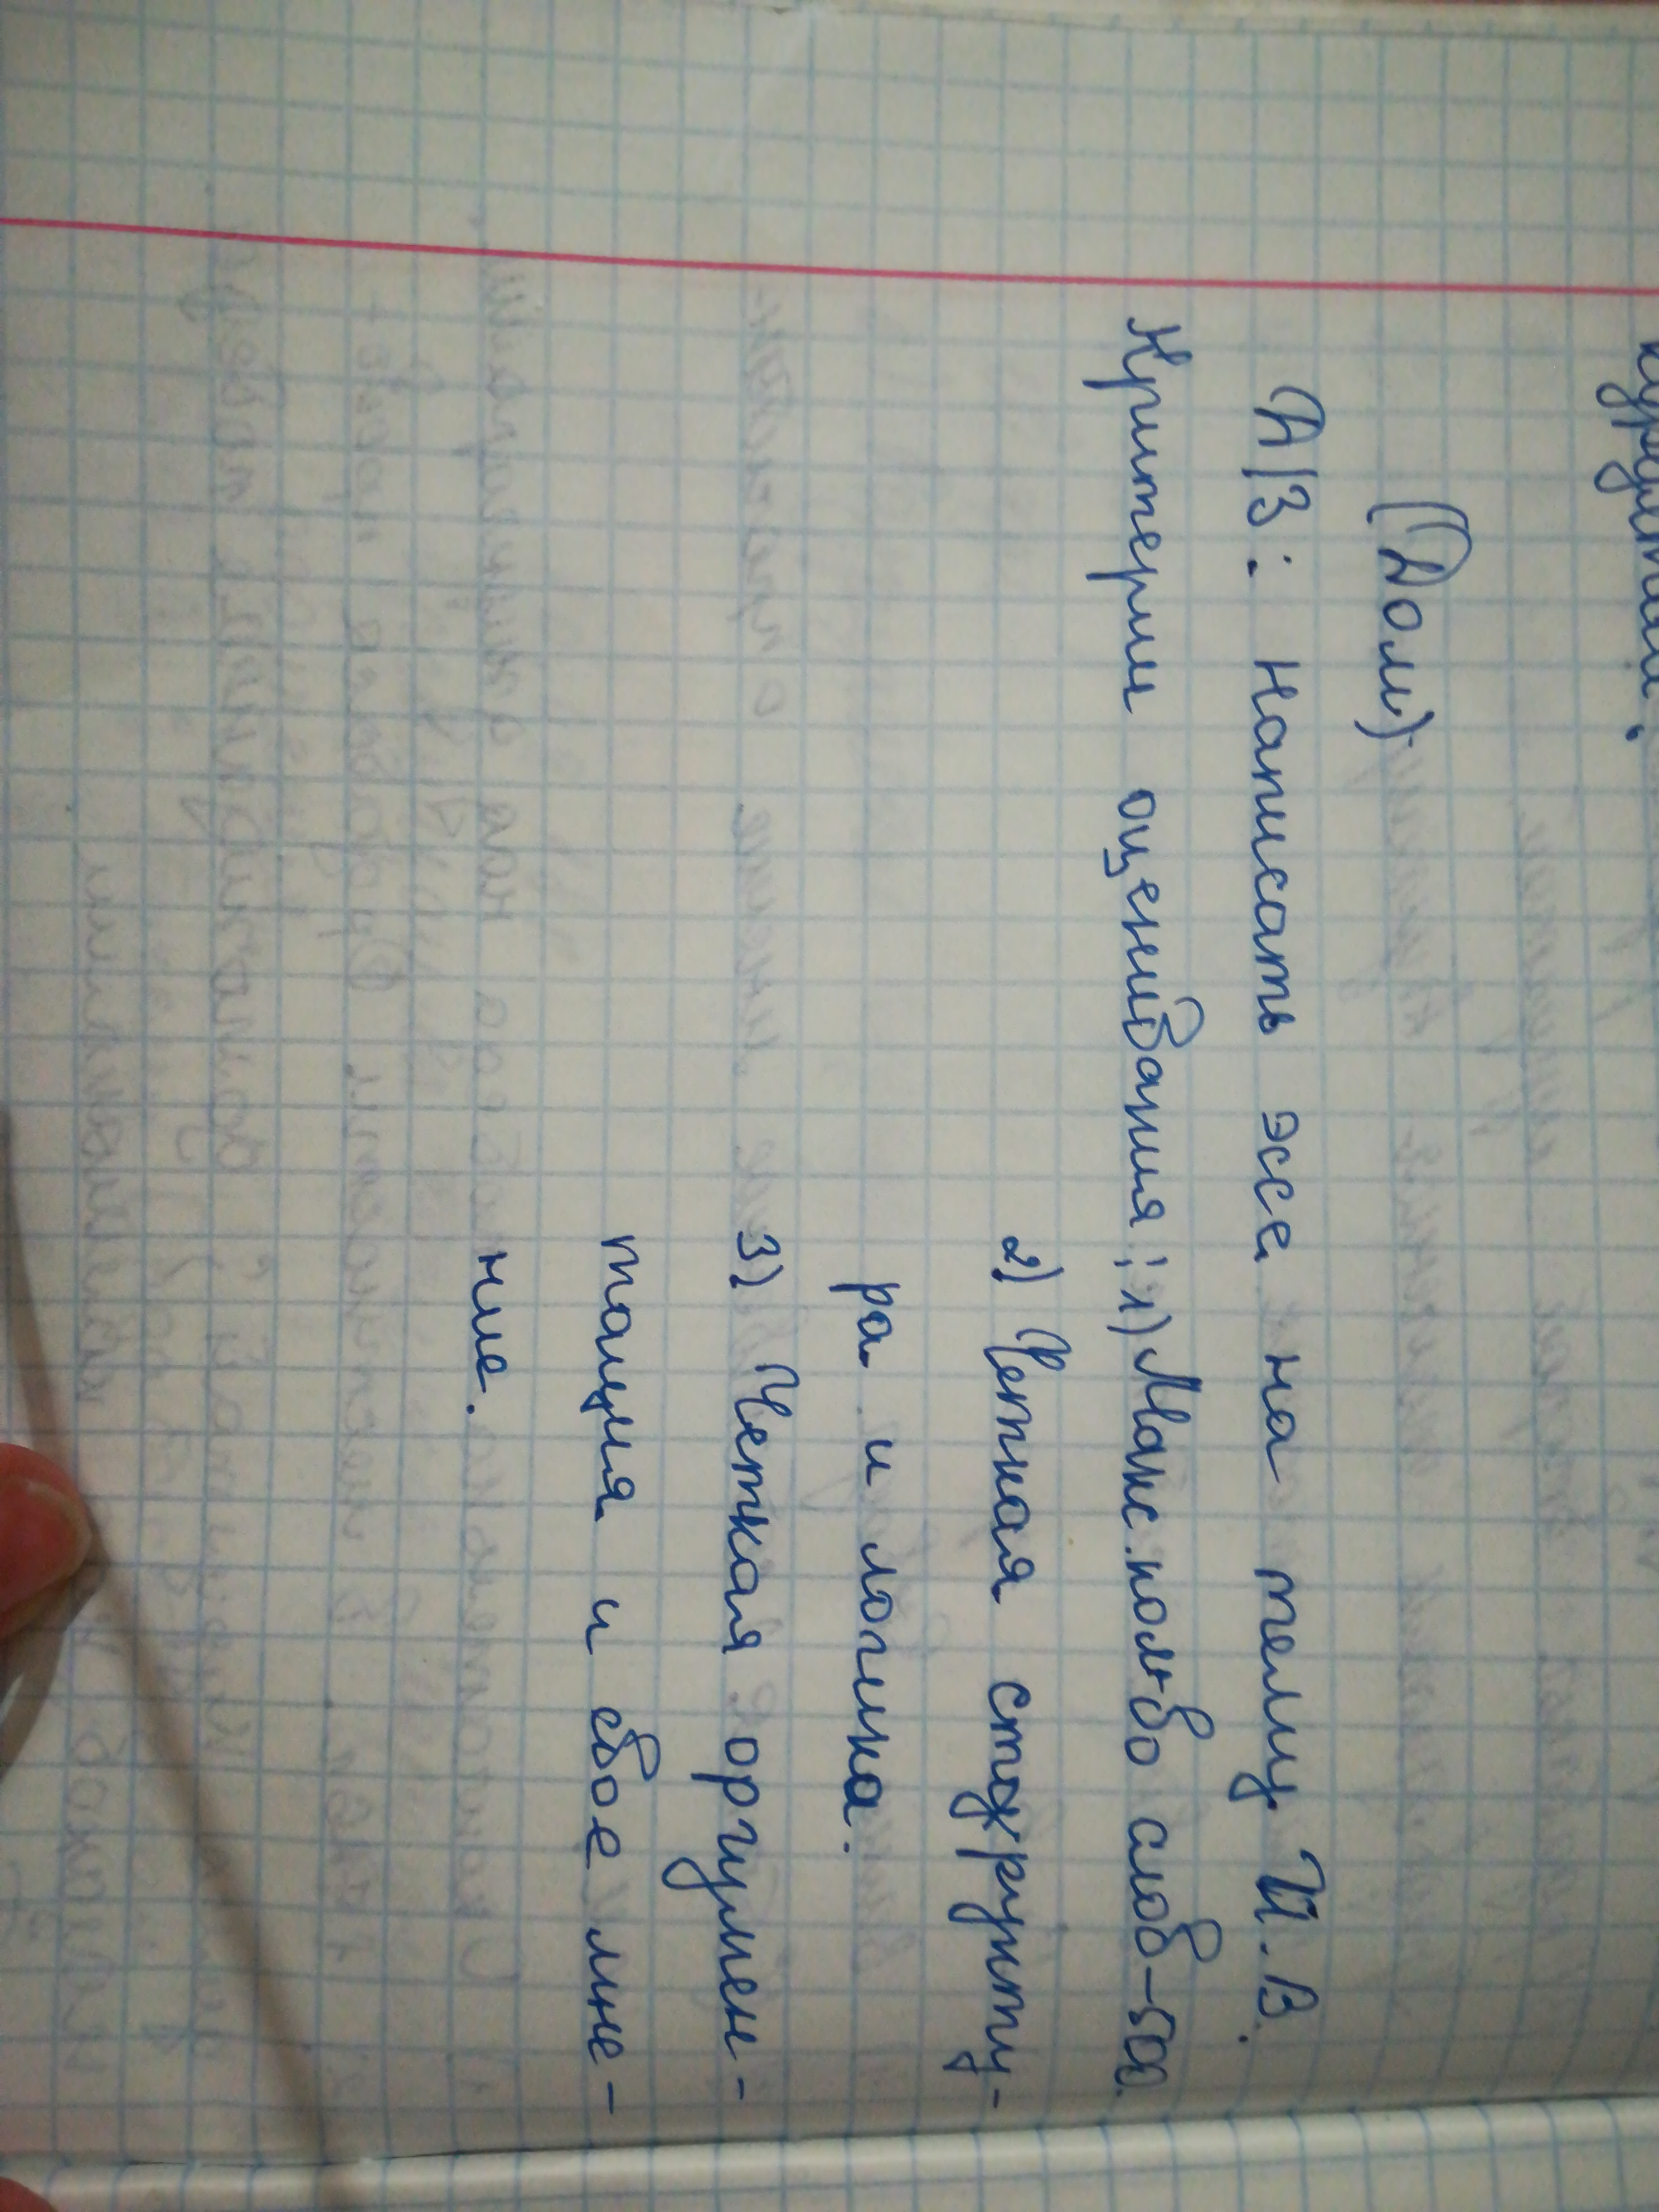 (Дом)
Д/З: Написать эссе на тему И.В.
Критерии оценивания: 1) Макс. кол-во слов-500.
2) Четкая структу-
ра и логика.
3) Четкая аргумен-
тация и свое мне-
ние.